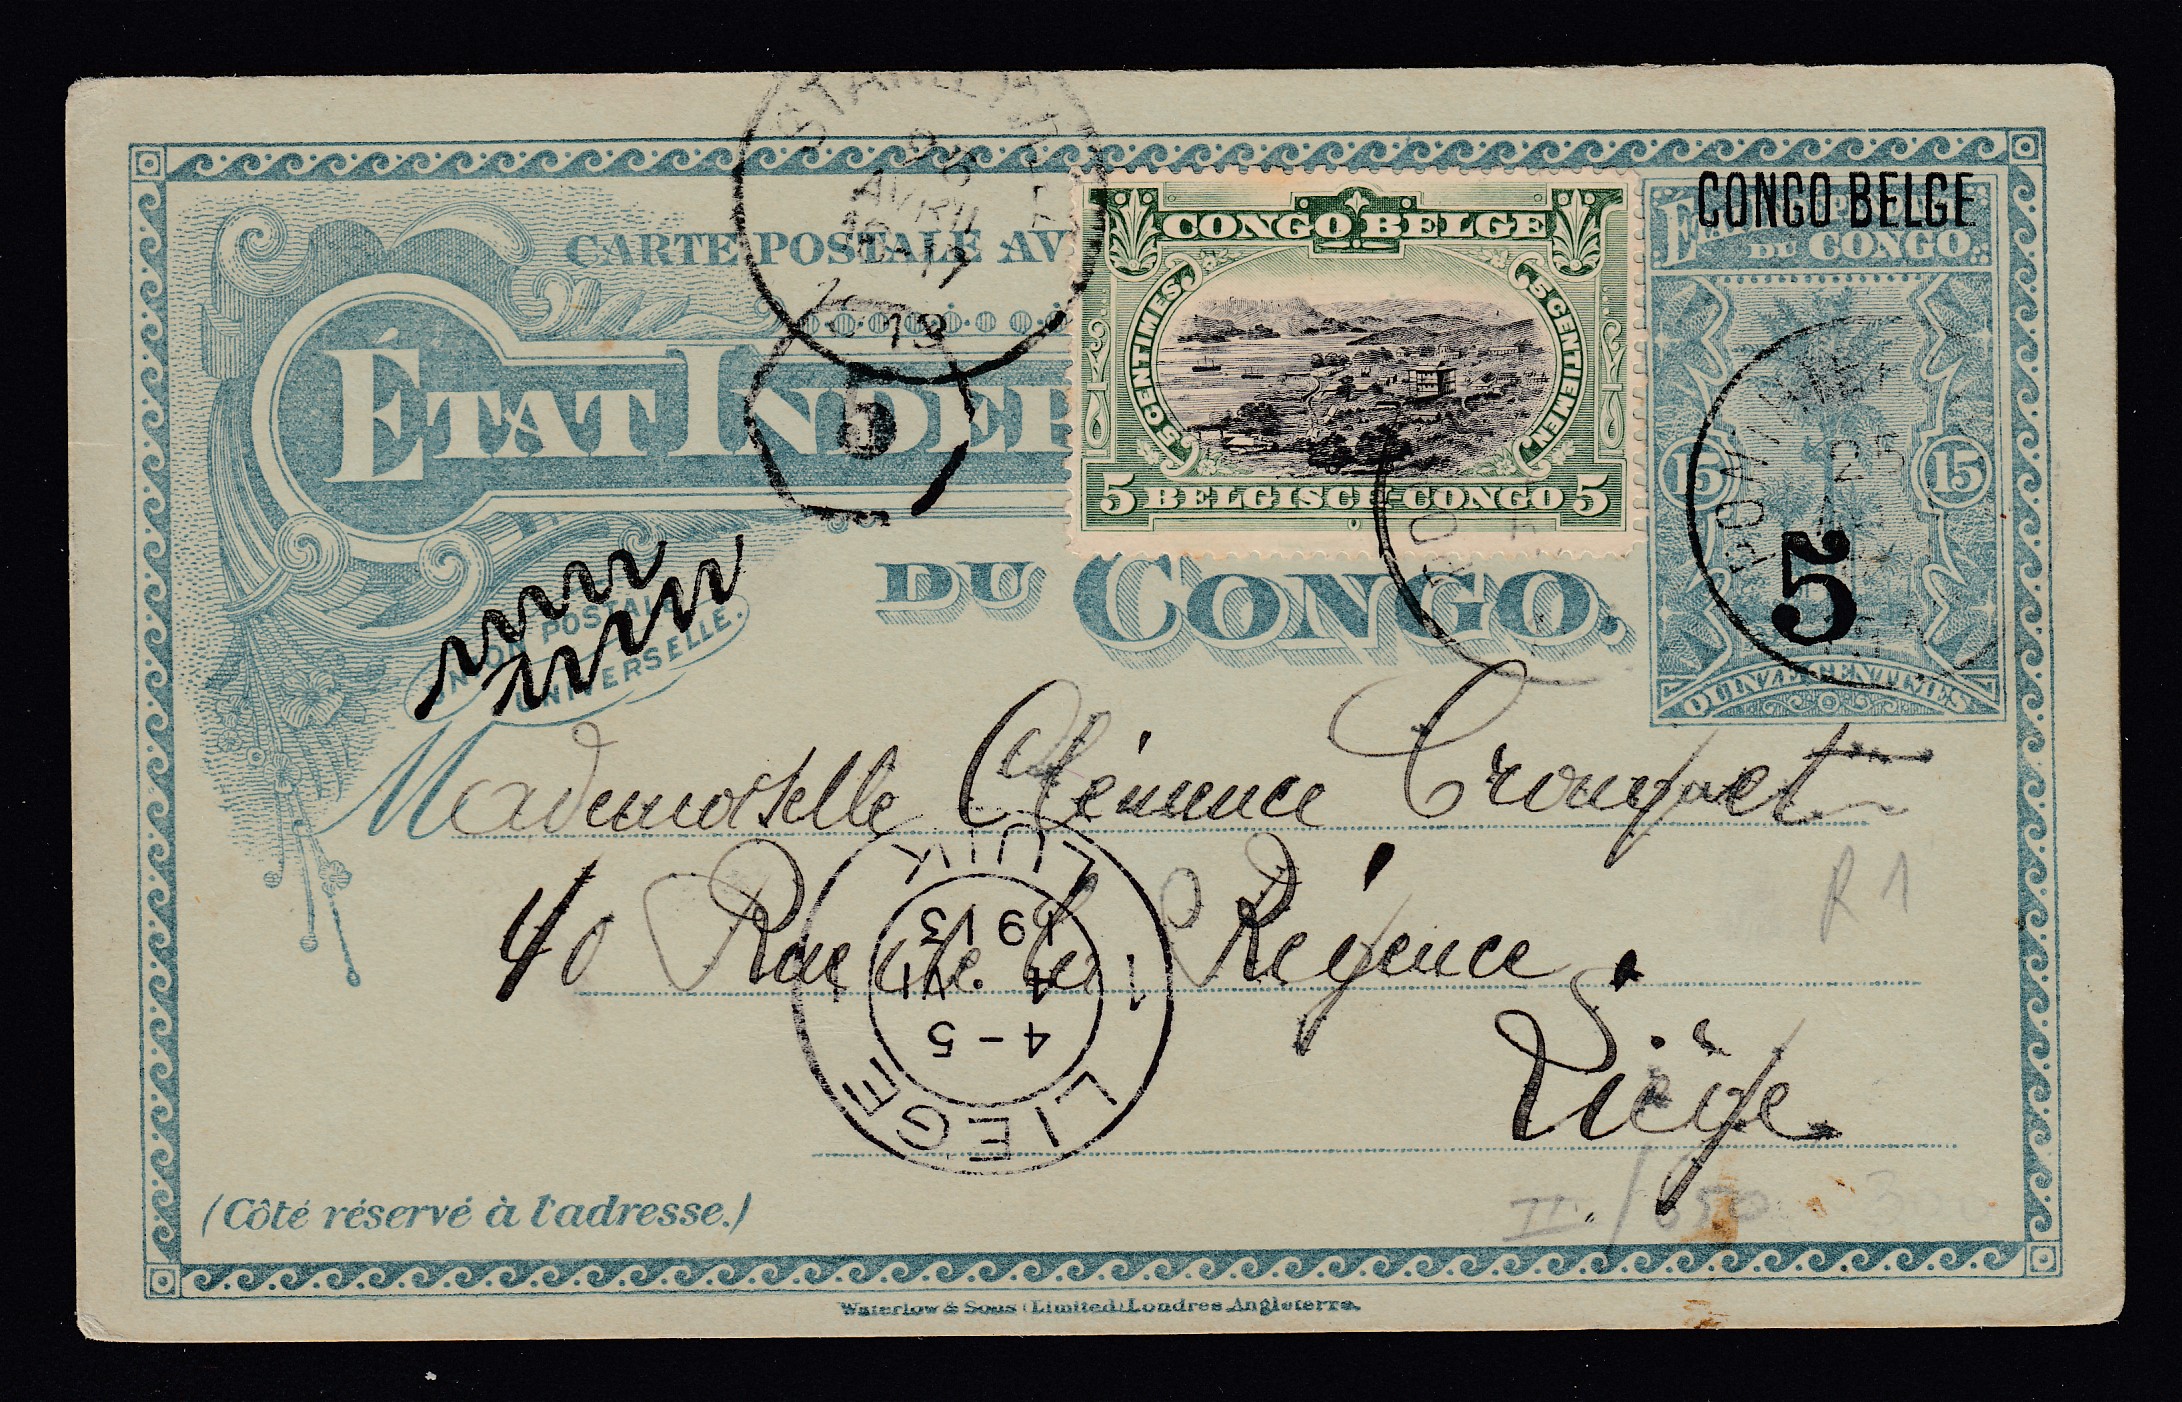 CARTE POSTALE AV
ÉTAT INDEP
DU CONGO.
UNION POSTALE
UNIVERSELLE.
CONGO BELGE
5 CENTIMES
5 CENTIEMEN.
5 BELGISCH-CONGO 5
CONGO BELGE
DU CONGO.
15 15
5
QUINZE CENTIMES
STANLEYVILLE
AVRIL
13
5
25
Mademoiselle Clémence
40 Rue de la Régence.
Liège.
LUIK
1913
4 VI
4-5
1 1
LIEGE
R 1
II. / 650
300
(Côté réservé à l'adresse.)
Waterlow & Sons (Limited) Londres Angleterre.